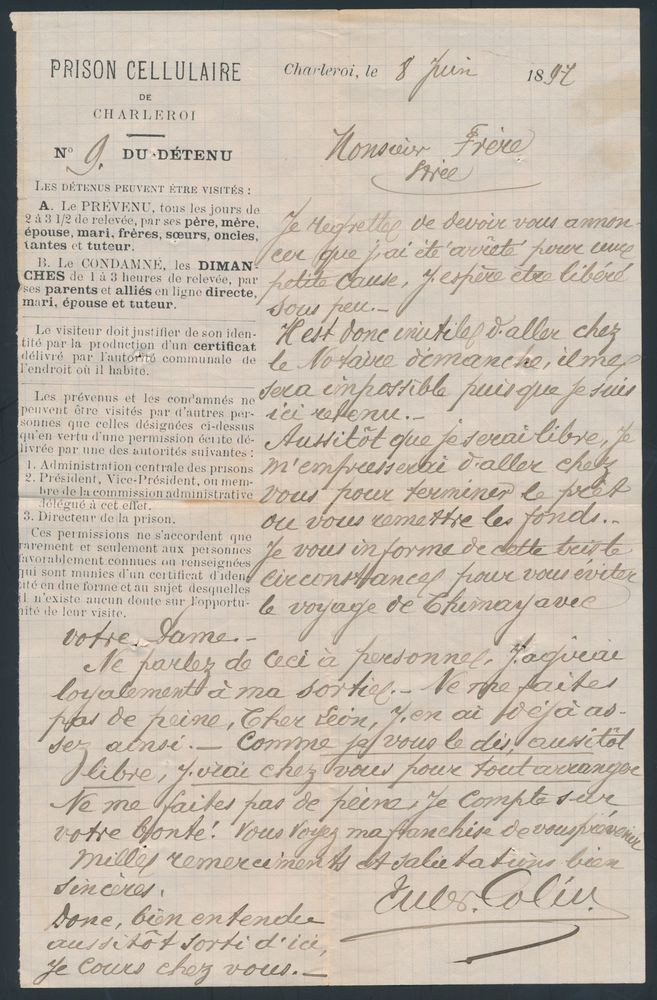 PRISON CELLULAIRE
DE
CHARLEROI
N° 9. DU DÉTENU
LES DÉTENUS PEUVENT ÊTRE VISITÉS :
A. Le PRÉVENU, tous les jours de
2 à 3 1/2 de relevée, par ses père, mère,
épouse, mari, frères, sœurs, oncles,
tantes et tuteur.
B. Le CONDAMNÉ, les DIMAN-
CHES de 1 à 3 heures de relevée, par
ses parents et alliés en ligne directe,
mari, épouse et tuteur.
Le visiteur doit justifier de son iden-
tité par la production d'un certificat
délivré par l'autorité communale de
l'endroit où il habite.
Les prévenus et les condamnés ne
peuvent être visités par d'autres per-
sonnes que celles désignées ci-dessus
qu'en vertu d'une permission écrite dé-
livrée par une des autorités suivantes :
1. Administration centrale des prisons
2. Président, Vice-Président, ou mem-
bre de la commission administrative
délégué à cet effet.
3. Directeur de la prison.
Ces permissions ne s'accordent que
rarement et seulement aux personnes
favorablement connues ou renseignées
qui sont munies d'un certificat d'iden-
tité en due forme et au sujet desquelles
il n'existe aucun doute sur l'opportu-
nité de leur visite.
Charleroi, le 8 Juin 1897
Monsieur Frère
Strée
Je regrette de devoir vous annon-
cer que j'ai été arrêté pour une
petite cause, J'espère etre libéré
sous peu.-
Il est donc inutile d'aller chez
le Notaire dimanche, il me
sera impossible puis que je suis
ici retenu.-
Aussitôt que je serai libre, Je
m'empresserai d'aller chez
vous pour terminer le prêt
ou vous remettre les fonds.-
Je vous informe de cette triste
circonstance pour vous éviter
le voyage de Chimay avec
votre Dame.-
Ne parlez de ceci à personne, J'agirai
loyalement à ma sortie.- Ne me faites
pas de peine, Cher Léon, J'en ai déjà as-
sez ainsi.- Comme je vous le dis, aussitôt
libre, J'irai chez vous pour tout arranger
Ne me faites pas de peine, Je compte sur
votre bonté! Vous voyez ma franchise de vous prévenir
Milles remerciments et salutations bien
sincères.
Jules Colin.
Donc, bien entendu
aussitôt sorti d'ici,
Je cours chez vous.-